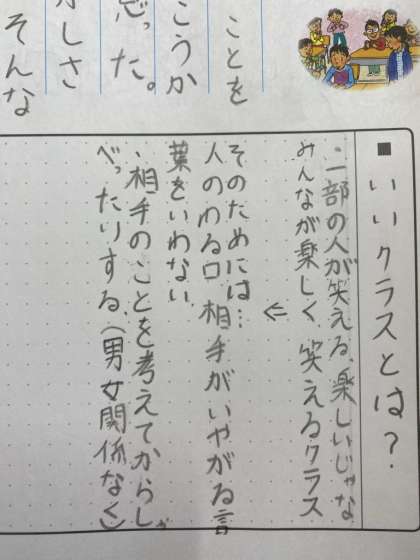 ことを
こうか
思った。
しさ
そんな
■いいクラスとは?
・一部の人が笑える、楽しいじゃな
みんなが楽しく、笑えるクラス
⇐
そのためには…
人のわる口、相手がいやがる言
葉をいわない。
・相手のことを考えてからしゃ
べったりする。(男女関係なく)